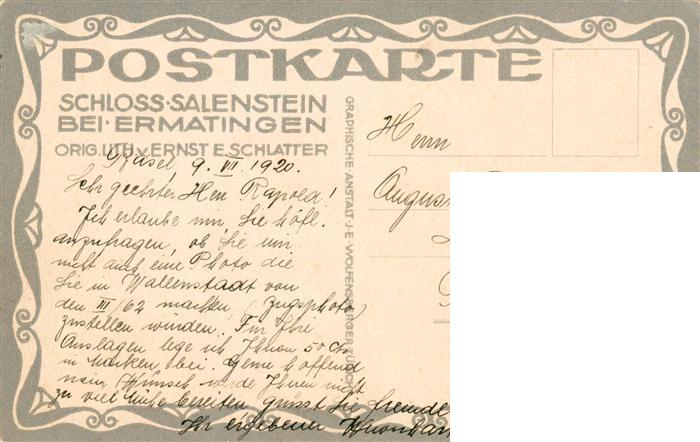 POSTKARTE
SCHLOSS·SALENSTEIN
BEI·ERMATINGEN
ORIG. LITH. v. ERNST E. SCHLATTER
GRAPHISCHE ANSTALT J·E·WOLFENSBERGER ZÜRICH
Basel, 9. VII. 1920.
Sehr geehrter Herr Rapold!
Ich erlaube mir, Sie höfl.
anzufragen, ob Sie mir
nicht auch eine Photo die
Sie in Wallenstadt von
den III/62 machten, (Zugsphoto)
zustellen würden. Für Ihre
Auslagen lege ich Ihnen 50 Cts
in Marken bei. Gerne hoffend
mein Wunsch werde Ihnen nicht
zu viel Mühe bereiten grüsst Sie
Ihr ergebener
Herrn
August